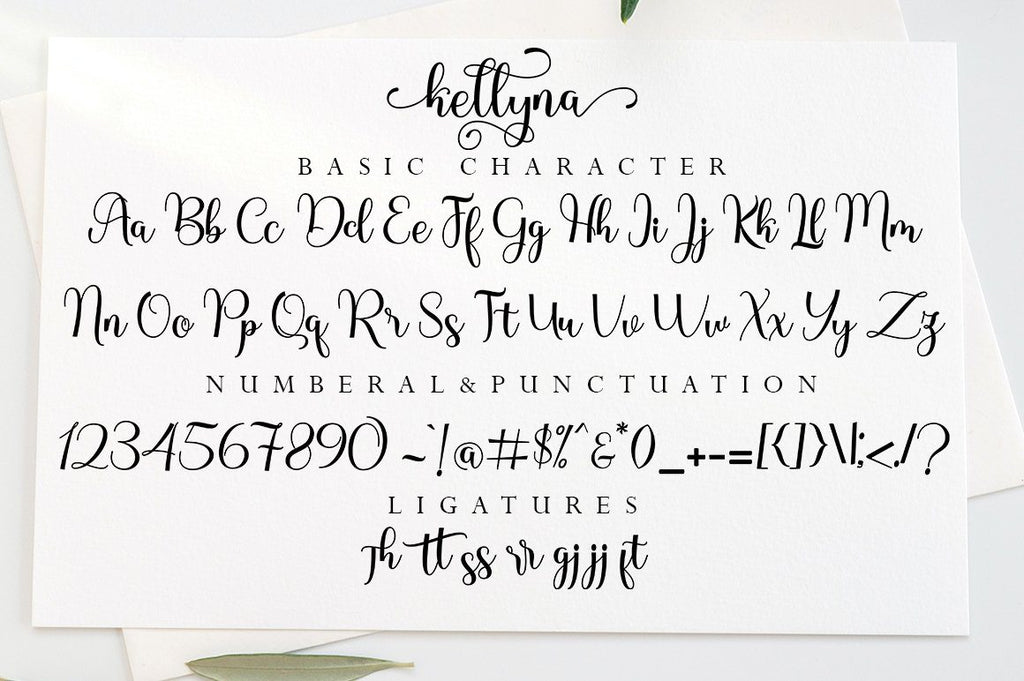 kellyna
BASIC CHARACTER
Aa Bb Cc Dd Ee Ff Gg Hh Ii Jj Kk Ll Mm
Nn Oo Pp Qq Rr Ss Tt Uu Vv Ww Xx Yy Zz
NUMBERAL&PUNCTUATION
1234567890 ~`!@#$%^&*()_+-=[{]}\|;<./?
LIGATURES
Th tt ss rr gj jj ft